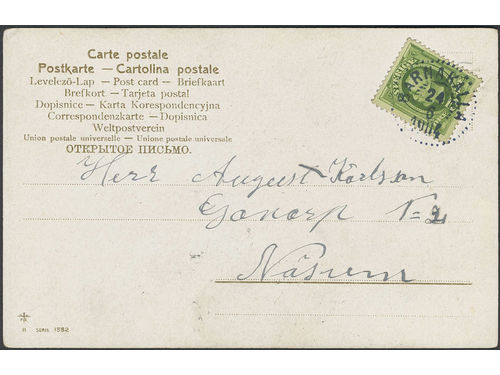 Carte postale
Postkarte — Cartolina postale
Levelező-Lap — Post card — Briefkaart
Brefkort — Tarjeta postal
Dopisnice — Karta Korespondencyjna
Correspondenzkarte — Dopisnica
Weltpostverein
Union postale universelle — Unione postale universale
ОТКРЫТОЕ ПИСЬМО.
Herr August Karlson
N=2
Näsum
SERIE 1582